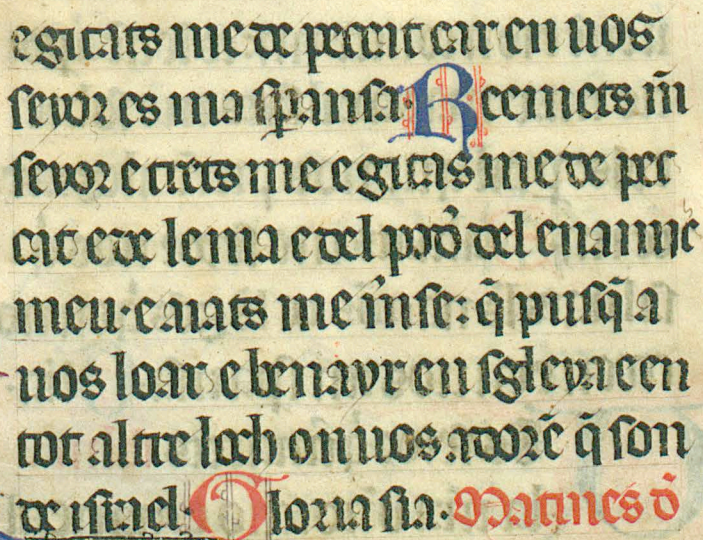 egitats me de peccat car en uos
seyor es ma sꝑansa· Reemets m̄
seyor e trets me e gitas me de pec
cat e de lema e del pod̄ del enamic
meu· e aiats me m̄se: q̄ pusq̄ a
uos loar e benayr en sgleya e en
tot altre loch on uos adorē q̄ son
de israel· Gloria sia· Matines d̄